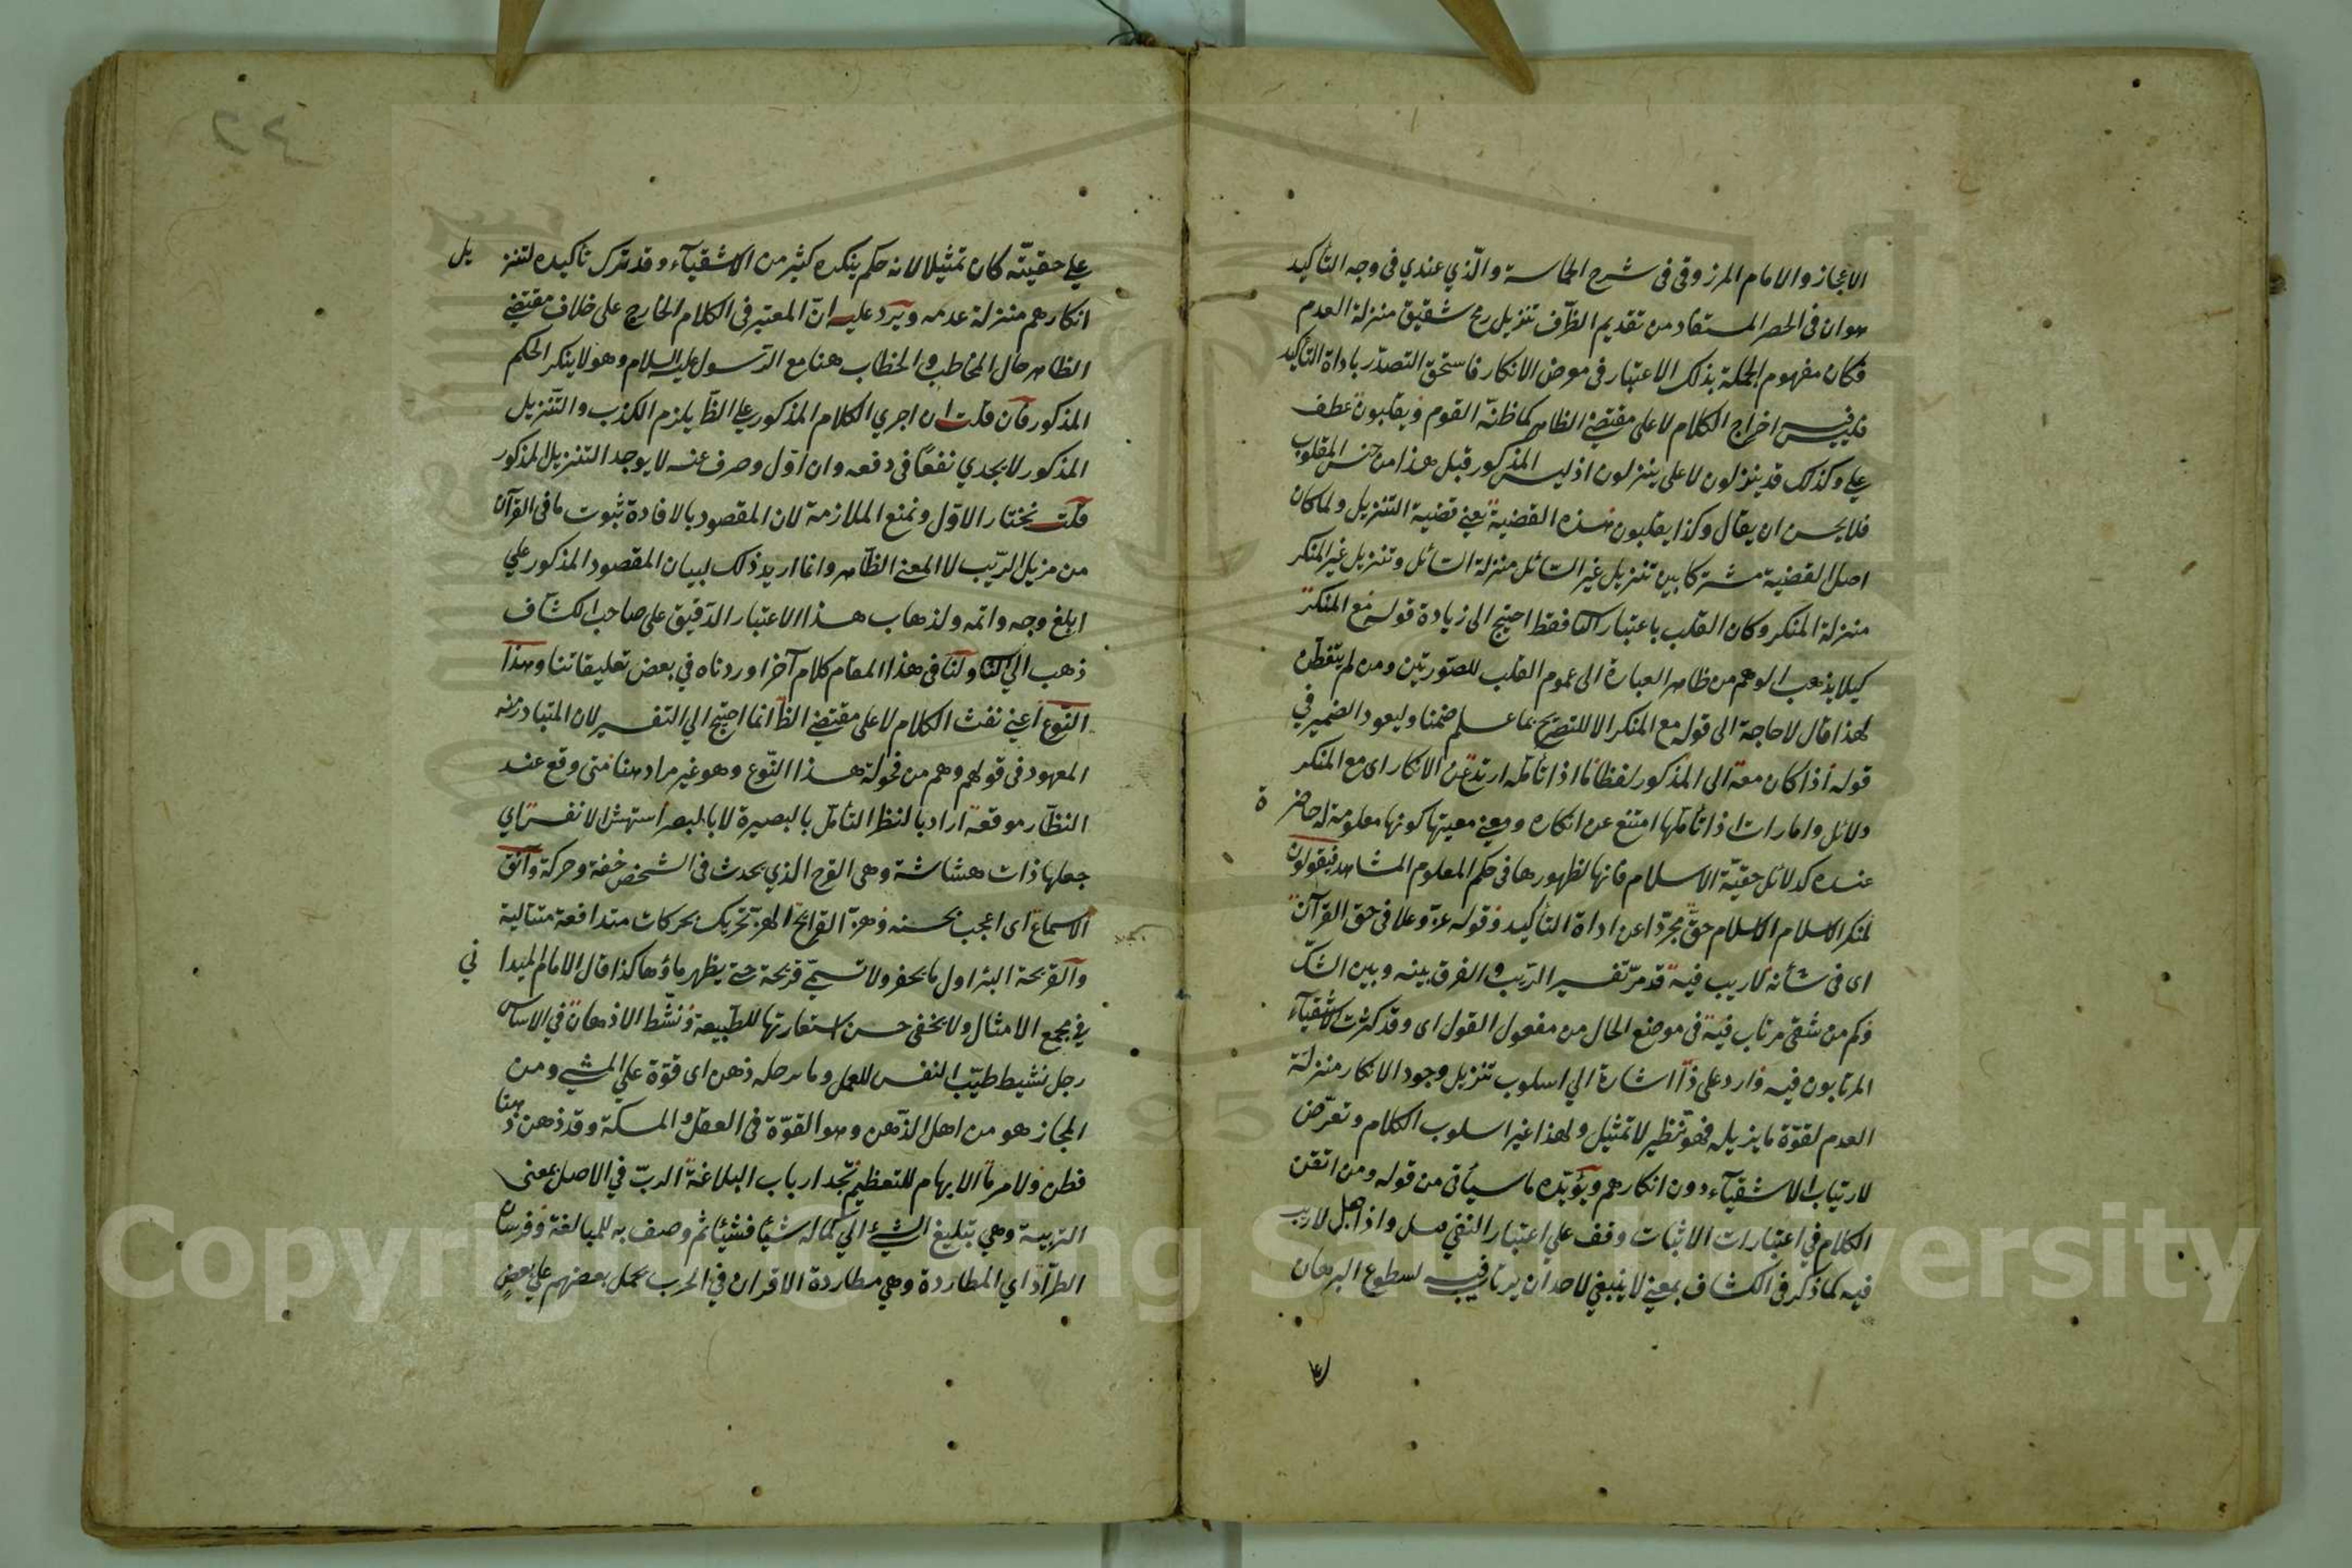 الاعجاز والامام المرزوقى فى شرح الحماسة والّذي عندي فى وجه التأكيد
هو ان فى الحصر المستفاد من تقديم الظرف تنزيل رمح شقيق منزلة العدم
فكان مفهوم الجملة بذلك الاعتبار فى معرض الانكار فاستحق التصدّر باداة التأكيد
فليس فيه اخراج الكلام لا على مقتضى الظاهر كما ظنّه القوم ويقلبون عطف
على وكذلك قد ينزلون لا على ينزلون اذ ليس المذكور قبل هذا من جنس المقلوب
فلا يحسن ان يقال وكذا يقلبون هذه القضية يعنى قضية التنزيل ولما كان
اصل القضية مشتركا بين تنزيل غير السائل منزلة السائل وتنزيل غير المنكر
منزلة المنكر وكان القلب باعتبار الثا فقط احتيج الى زيادة قوله مع المنكر
كيلا يذهب الوهم من ظاهر العبارة الى عموم القلب للصّورتين ومن لم يتفطن
لهذا قال لا حاجة الى قوله مع المنكر الا للتصريح بما علم ضمنا وليعود الضمير في
قوله اذا كان معه الى المذكور لفظا ما اذا تأمّله ارتدع عن الانكار اى مع المنكر
دلائل وامارات اذا تأملها امتنع عن انكاره ومعنى معيتها كونها معلومة له حاضرة
عنده كدلائل حقيّة الاسلام فانها لظهورها فى حكم المعلوم المشاهد فيقولون
لمنكر الاسلام الاسلام حقّ مجرّدا عن اداة التأكيد وقوله عزّ وعلا فى حق القرآن
اى فى شأنه لا ريب فيه قد مرّ تفسير الرّيب والفرق بينه وبين الشكّ
وكم من شقى مرتاب فيه فى موضع الحال من مفعول القول اى وقد كثرت الاشقيآء
المرتابون فيه وارد على ذا اشارة الي اسلوب تنزيل وجود الانكار منزلة
العدم لقوّة ما يزيله فهو تنظير لا تمثيل ولهذا غير اسلوب الكلام وتعرّض
لارتياب الاشقيآء دون انكارهم ويؤيّده ما سيأتى من قوله ومن اتقن
الكلام في اعتبارات الاثبات وقف علي اعتبار النفي واذا حمل لا ريب
فيه كما ذكر فى الكشاف بمعنى لا ينبغي لاحد ان يرتاب فيه لسطوع البرهان
٢٤
علي حقيّته كان تمثيلا لانه حكم ينكره كثير من الاشقيآء وقد ترك تأكيده لتنزيل
انكارهم منزلة عدمه ويرد عليه انّ المعتبر فى الكلام الخارج على خلاف مقتضى
الظاهر حال المخاطب والخطاب هنا مع الرّسول عليه السلام وهو لا ينكر الحكم
المذكور فان قلت ان اجري الكلام المذكور على الظّا يلزم الكذب والتّنزيل
المذكور لا يجدي نفعًا في دفعه وان اوّل وصرف عنه لا يوجد التنزيل المذكور
قلت نختار الاوّل ونمنع الملازمة لان المقصود بالافادة ثبوت ما فى القرآن
من مزيل الرّيب لا المعنى الظّاهر وانما اريد ذلك لبيان المقصود المذكور علي
ابلغ وجه واتمه ولذهاب هذا الاعتبار الدّقيق على صاحب الكشّاف
ذهب الي الثا ولنا فى هذا المقام كلام آخر اوردناه في بعض تعليقاتنا وهذا
النّوع اعني نفث الكلام لا على مقتضى الظّا انما احتيج الي التفسير لان المتبادر منه
المعهود فى قولهم وهم من فحولة هذا النّوع وهو غير مراد هنا متى وقع عند
النظّار موقعه اراد بالنظر التأمّل بالبصيرة لا بالبصر استهشّ الانفس اي
جعلها ذات هشاشة وهى الفرح الذي يحدث فى الشخص خفة وحركة وآنق
الاسماع اى اعجب بحسنه وهزّ القرائح الهزّ تحريك بحركات متدافعة متتالية
والقريحة البئر اول ما يحفر ولا تسمّى قريحة حتى يظهر ماؤها كذا قال الامام الميداني
في مجمع الامثال ولا يخفى حسن استعارتها للطّبيعة ونشّط الاذهان في الاساس
رجل نشيط طيّب النفس للعمل وما برجله ذهن اى قوّة علي المشي ومن
المجاز هو من اهل الذّهن وهو القوّة فى العقل والمسكة وقد ذهن ذهنا
فطن ولامر ما الابهام للتعظيم تجد ارباب البلاغة الربّ في الاصل بمعنى
التربية وهي تبليغ الشيء الي كماله شيئا فشيئا ثم وصف به للمبالغة وفرسان
الطرّاد اي المطاردة وهي مطاردة الاقران في الحرب بحمل بعضهم علي بعضٍ
Copyright © King Saud University